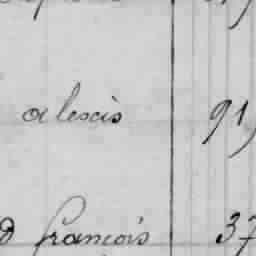 alescis 91
d francois 37